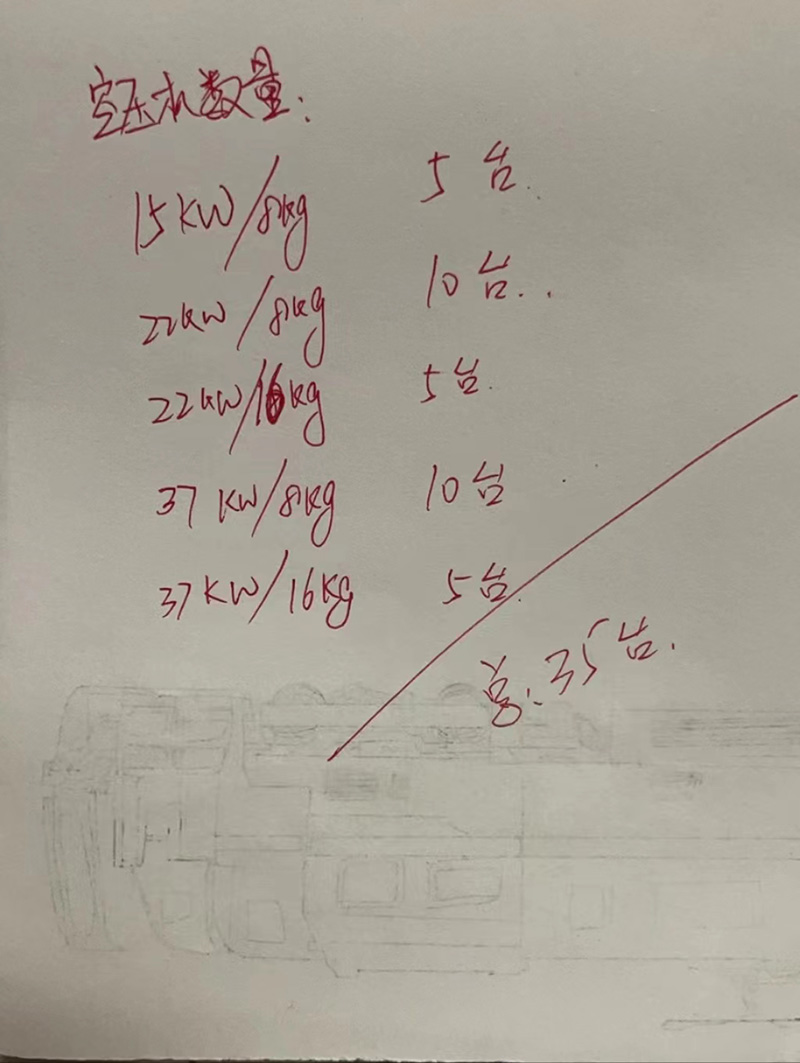 空压机数量：
15KW/8kg 5台.
22KW/8kg 10台..
22KW/16kg 5台.
37KW/8kg 10台
37KW/16kg 5台.
总:35台.